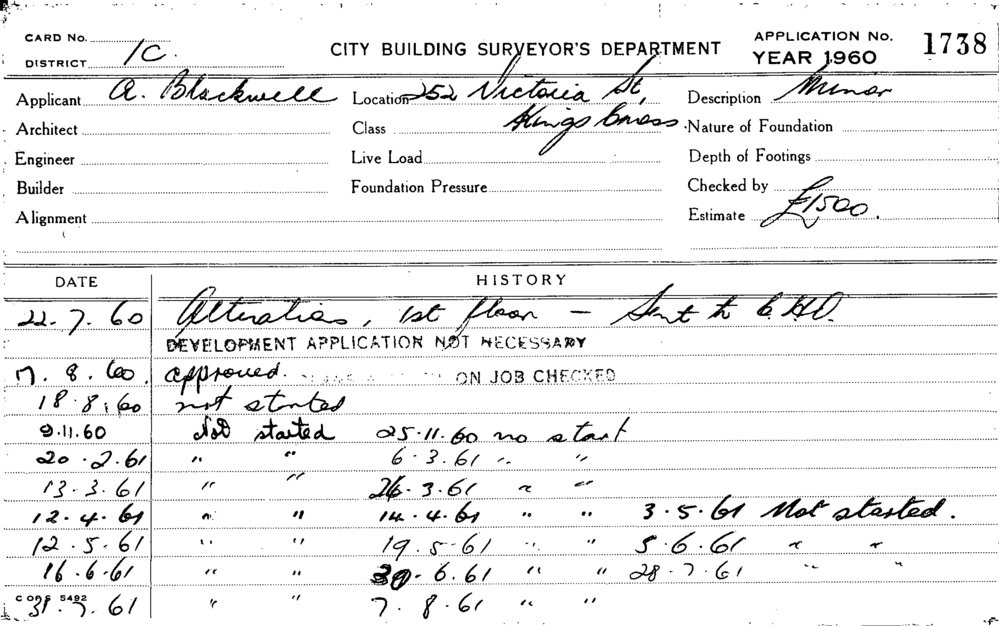 CARD No.
DISTRICT 1C.
CITY BUILDING SURVEYOR'S DEPARTMENT
APPLICATION No. 1738
YEAR 1960
Applicant A. Blackwell Location 252 Victoria St, Description Minor
Architect Class Kings Cross Nature of Foundation
Engineer Live Load Depth of Footings
Builder Foundation Pressure Checked by
Alignment Estimate £1500.
DATE HISTORY
22.7.60 Alterations, 1st floor - Sent to C.H.O.
DEVELOPMENT APPLICATION NOT NECESSARY
7.8.60. approved. ON JOB CHECKED
18.8.60 not started
9.11.60 Not started 25.11.60 no start
20.2.61 " " 6.3.61 " "
13.3.61 " " 26.3.61 " "
12.4.61 " " 14.4.61 " " 3.5.61 Not started.
12.5.61 " " 19.5.61 " " 5.6.61 " "
16.6.61 " " 30.6.61 " " 28.7.61 " "
CORS 5492
31.7.61 " " 7.8.61 " "